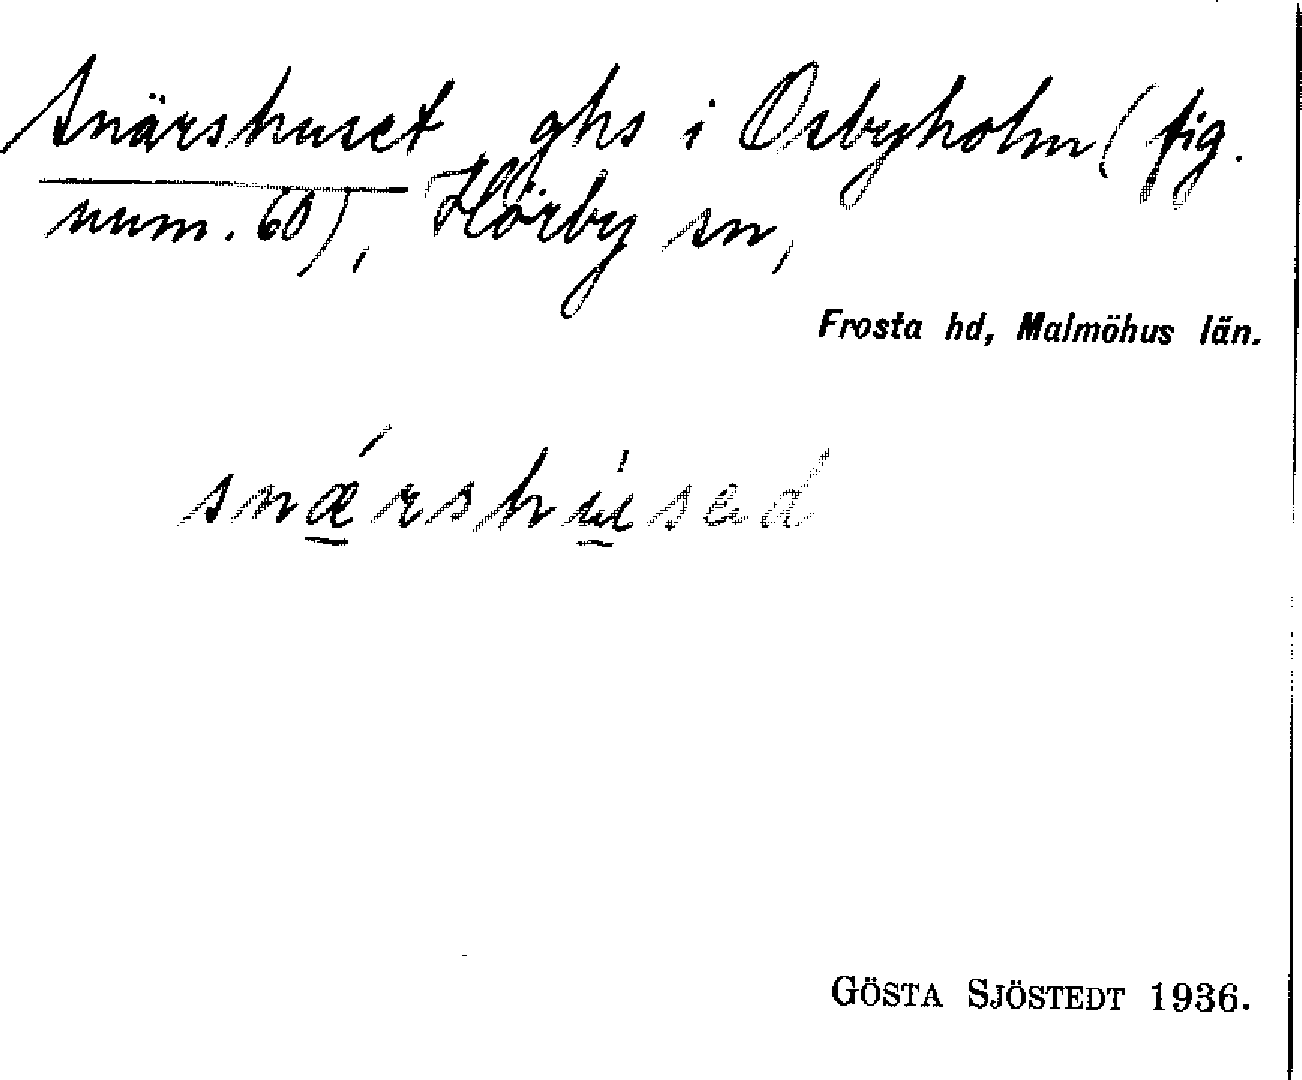 Snärshuset ghs i Osbyholm (fig.
num. 60), Hörby sn,
Frosta hd, Malmöhus län.
snǽ̱rshu̱̍səd
GÖSTA SJÖSTEDT 1936.